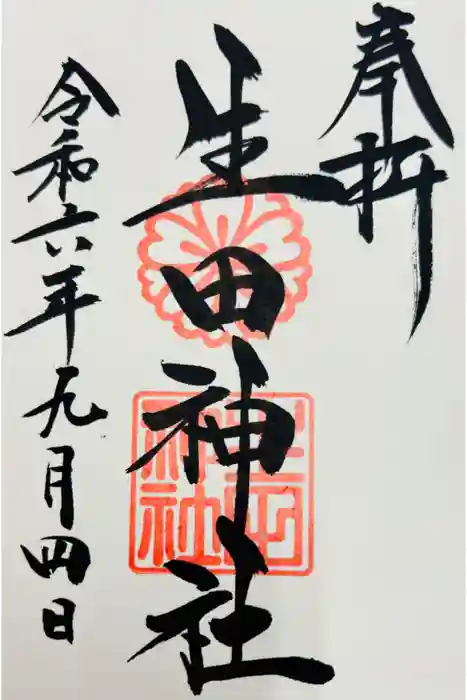 奉拝
生田神社
生田神社
令和六年九月四日